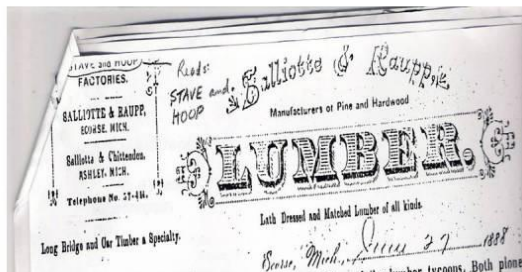 STAVE and HOOP
FACTORIES.
SALLIOTTE & RAUPP,
ECORSE, MICH.
Salliotte & Chittenden,
ASHLEY, MICH.
Telephone No. 37-4R.
Long Bridge and Oar Timber a Specialty.
Reads:
STAVE and
HOOP
Salliotte & Raupp,
Manufacturers of Pine and Hardwood
LUMBER.
Lath Dressed and Matched Lumber of all kinds.
Ecorse, Mich., June 27 1888
lumber tycoons. Both